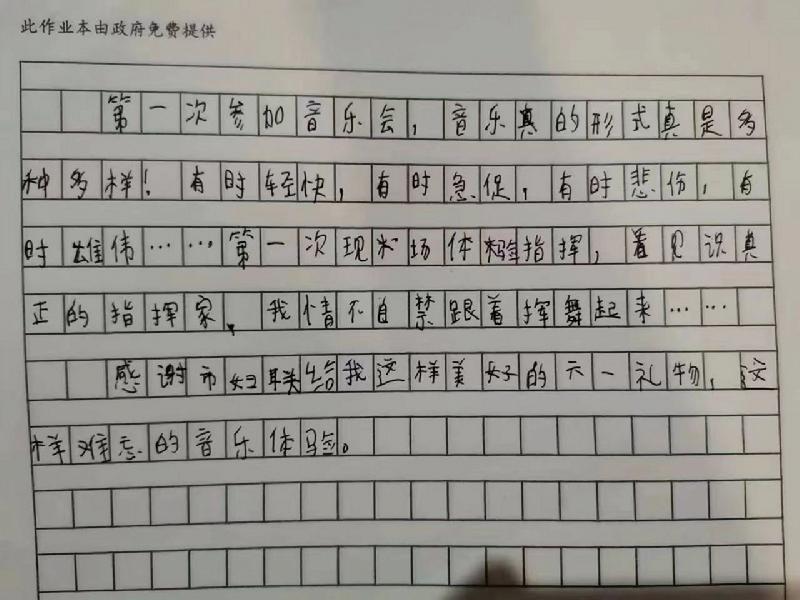 此作业本由政府免费提供
第一次参加音乐会，音乐真的形式真是多
种多样！有时轻快，有时急促，有时悲伤，有
时雄伟……第一次现场体验指挥，看见识真
正的指挥家，我情不自禁跟着挥舞起来……
感谢市妇联给我这样美好的六一礼物，这
样难忘的音乐体验。